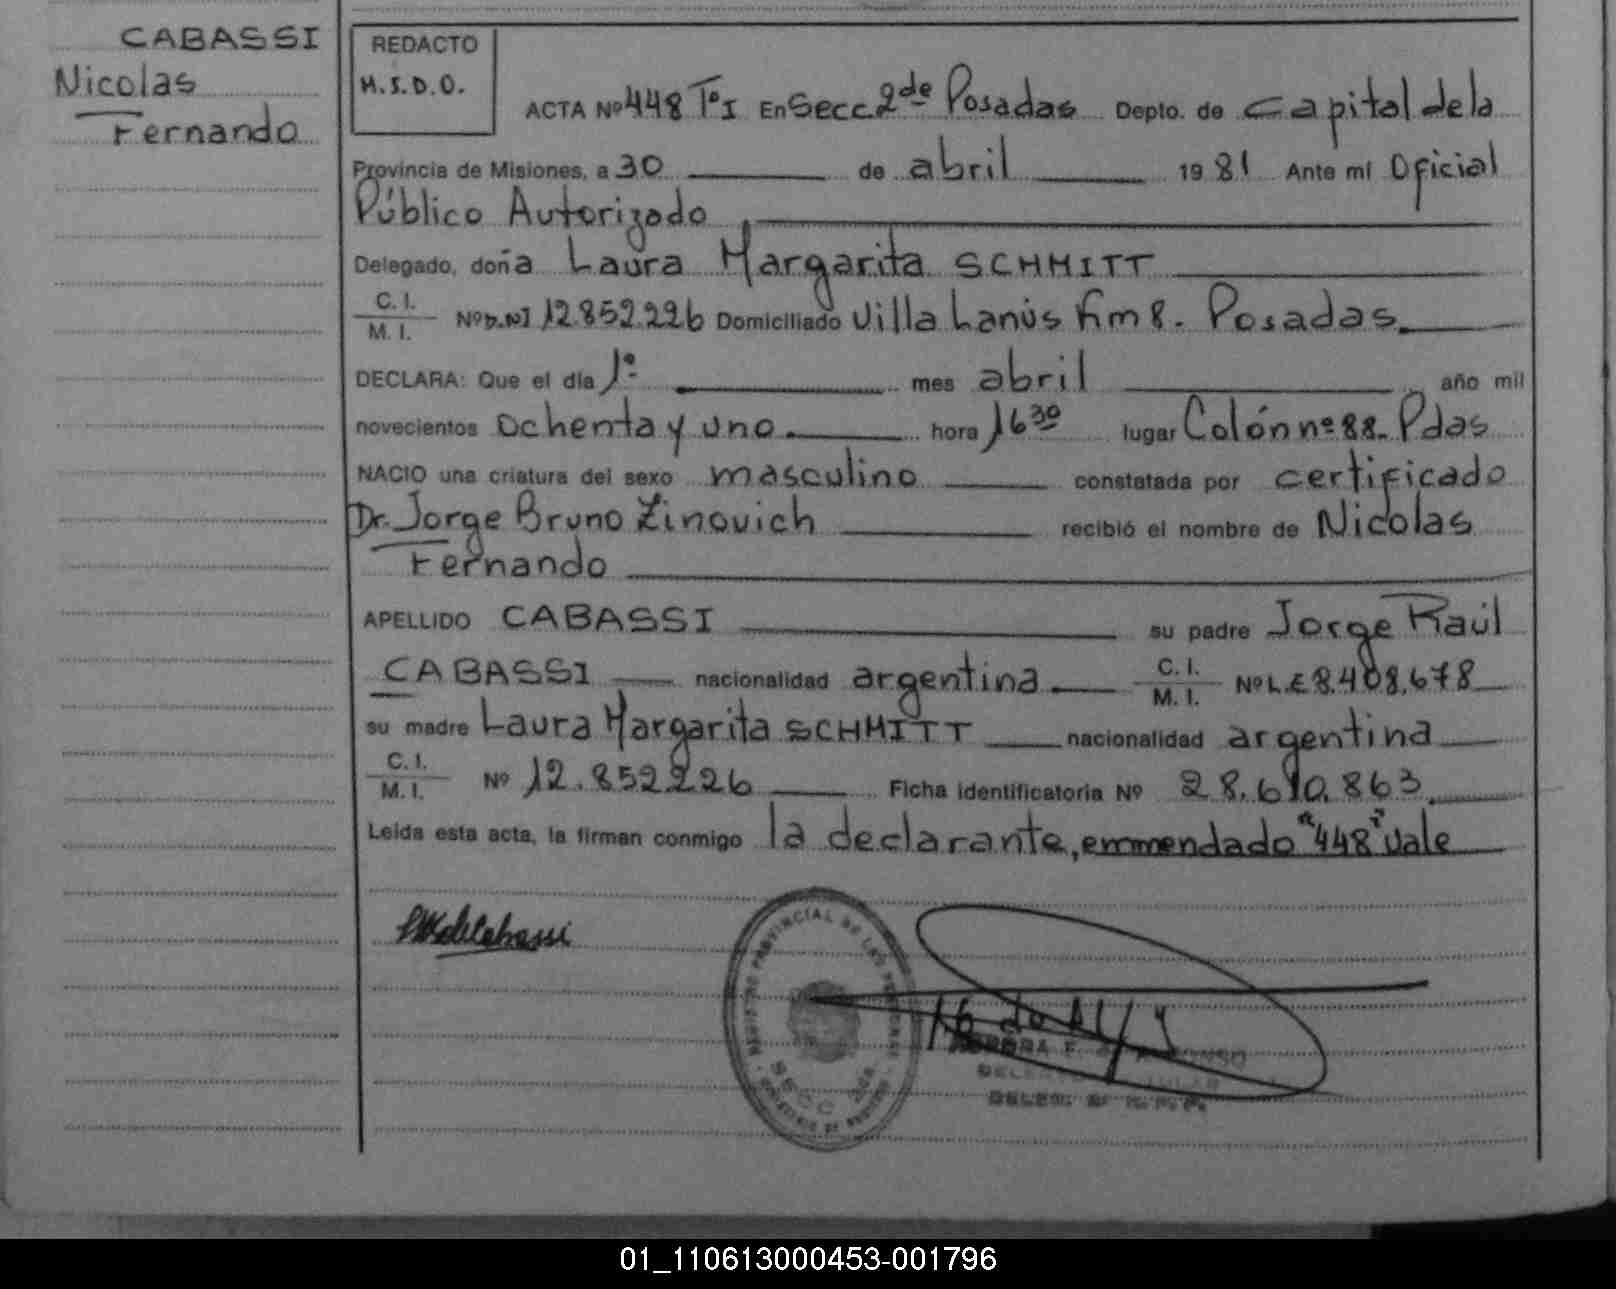 CABASSI
Nicolas
Fernando
REDACTO
M.S.D.O.
ACTA Nº 448 Tº I En Secc 2de Posadas Depto. de Capital de la
Provincia de Misiones, a 30 de abril 1981 Ante mi Oficial
Público Autorizado
Delegado, doña Laura Margarita SCHMITT
C. I.
M. I. Nº D.NI 12.852.226 Domiciliado Villa Lanús Km 8. Posadas.
DECLARA: Que el día 1º mes abril año mil
novecientos ochenta y uno. hora 16 30 lugar Colón nº 88. Pdas
NACIO una criatura del sexo masculino constatada por certificado
Dr. Jorge Bruno Zinovich recibió el nombre de Nicolas
Fernando
APELLIDO CABASSI su padre Jorge Raúl
CABASSI nacionalidad argentina. C. I. M. I. Nº L.E 8.408.678
su madre Laura Margarita SCHMITT nacionalidad argentina
C. I. M. I. Nº 12.852226 Ficha identificatoria Nº 28.610.863.
Leída esta acta, la firman conmigo la declarante, emmendado "448" vale
PROVINCIAL DE LAS PERSONAS
SECC 2da
DELEG. 2ª R.P.P.
01_110613000453-001796